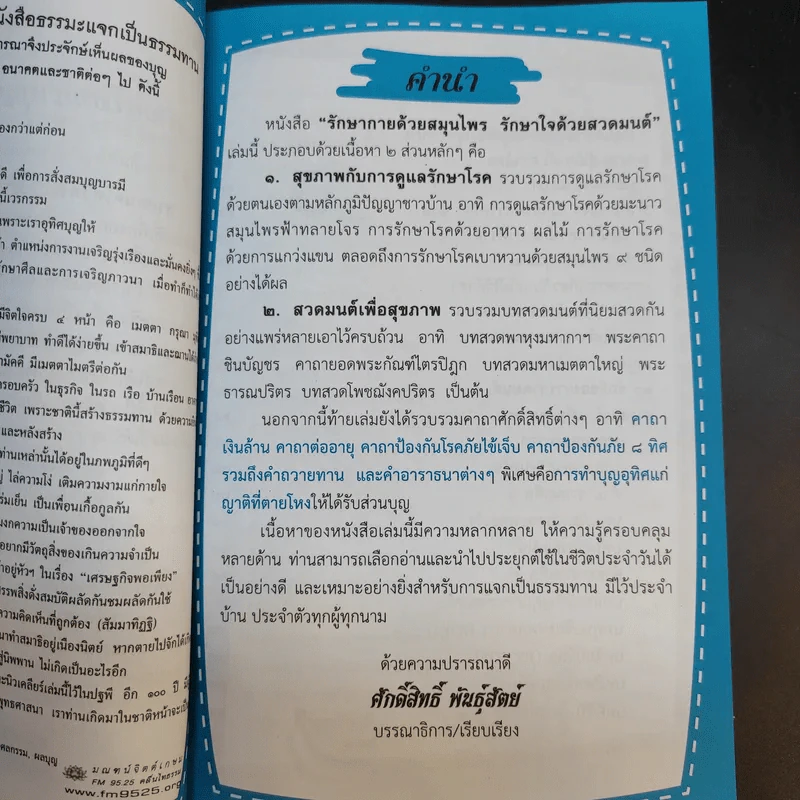 นังสือธรรมะแจกเป็นธรรมทาน
ารณาจึงประจักษ์เห็นผลของบุญ
อนาคตและชาติต่อๆ ไป ดังนี้
องกว่าแต่ก่อน
ดี เพื่อการสั่งสมบุญบารมี
นี้เวรกรรม
เพราะเราอุทิศบุญให้
ำ ตำแหน่งการงานเจริญรุ่งเรืองและมั่นคงยิ่งๆ
ักษาศีลและการเจริญภาวนา เมื่อทำก็ทำได้
มีจิตใจครบ ๔ หน้า คือ เมตตา กรุณา
พยาบาท ทำดีได้ง่ายขึ้น เข้าสมาธิและฌานได้
ามัคคี มีเมตตาไมตรีต่อกัน
รอบครัว ในธุรกิจ ในรถ เรือ บ้านเรือน
ชีวิต เพราะชาตินี้สร้างธรรมทาน ด้วยความ
และหลังสร้าง
ท่านเหล่านั้นได้อยู่ในภพภูมิที่ดีๆ
ไล่ความโง่ เติมความงามแก่กายใจ
ร่มเย็น เป็นเพื่อนเกื้อกูลกัน
งกความเป็นเจ้าของออกจากใจ
อยากมีวัตถุสิ่งของเกินความจำเป็น
าอยู่หัวฯ ในเรื่อง “เศรษฐกิจพอเพียง”
รรพสิ่งดั่งสมบัติผลัดกันชมผลัดกันใช้
ความคิดเห็นที่ถูกต้อง (สัมมาทิฏฐิ)
นาทำสมาธิอยู่เนืองนิตย์ หากตายไปจักได้
สู่นิพพาน ไม่เกิดเป็นอะไรอีก
ะนิวเคลียร์เล่มนี้ไว้ในปฐพี อีก ๑๐๐ ปี
ุทธศาสนา เราท่านเกิดมาในชาติหน้าจะ
ศลกรรม, ผลบุญ
มณฑน์จิตต์เกษม
FM 95.25 คลื่นไทยธรรม
www.fm9525.org
คำนำ
หนังสือ “รักษากายด้วยสมุนไพร รักษาใจด้วยสวดมนต์”
เล่มนี้ ประกอบด้วยเนื้อหา ๒ ส่วนหลักๆ คือ
๑. สุขภาพกับการดูแลรักษาโรค รวบรวมการดูแลรักษาโรค
ด้วยตนเองตามหลักภูมิปัญญาชาวบ้าน อาทิ การดูแลรักษาโรคด้วยมะนาว
สมุนไพรฟ้าทลายโจร การรักษาโรคด้วยอาหาร ผลไม้ การรักษาโรค
ด้วยการแกว่งแขน ตลอดถึงการรักษาโรคเบาหวานด้วยสมุนไพร ๙ ชนิด
อย่างได้ผล
๒. สวดมนต์เพื่อสุขภาพ รวบรวมบทสวดมนต์ที่นิยมสวดกัน
อย่างแพร่หลายเอาไว้ครบถ้วน อาทิ บทสวดพาหุงมหากาฯ พระคาถา
ชินบัญชร คาถายอดพระกัณฑ์ไตรปิฎก บทสวดมหาเมตตาใหญ่ พระ
ธารณปริตร บทสวดโพชฌังคปริตร เป็นต้น
นอกจากนี้ท้ายเล่มยังได้รวบรวมคาถาศักดิ์สิทธิ์ต่างๆ อาทิ คาถา
เงินล้าน คาถาต่ออายุ คาถาป้องกันโรคภัยไข้เจ็บ คาถาป้องกันภัย ๘ ทิศ
รวมถึงคำถวายทาน และคำอาราธนาต่างๆ พิเศษคือการทำบุญอุทิศแก่
ญาติที่ตายโหงให้ได้รับส่วนบุญ
เนื้อหาของหนังสือเล่มนี้มีความหลากหลาย ให้ความรู้ครอบคลุม
หลายด้าน ท่านสามารถเลือกอ่านและนำไปประยุกต์ใช้ในชีวิตประจำวันได้
เป็นอย่างดี และเหมาะอย่างยิ่งสำหรับการแจกเป็นธรรมทาน มีไว้ประจำ
บ้าน ประจำตัวทุกผู้ทุกนาม
ด้วยความปรารถนาดี
ศักดิ์สิทธิ์ พันธุ์สัตย์
บรรณาธิการ/เรียบเรียง